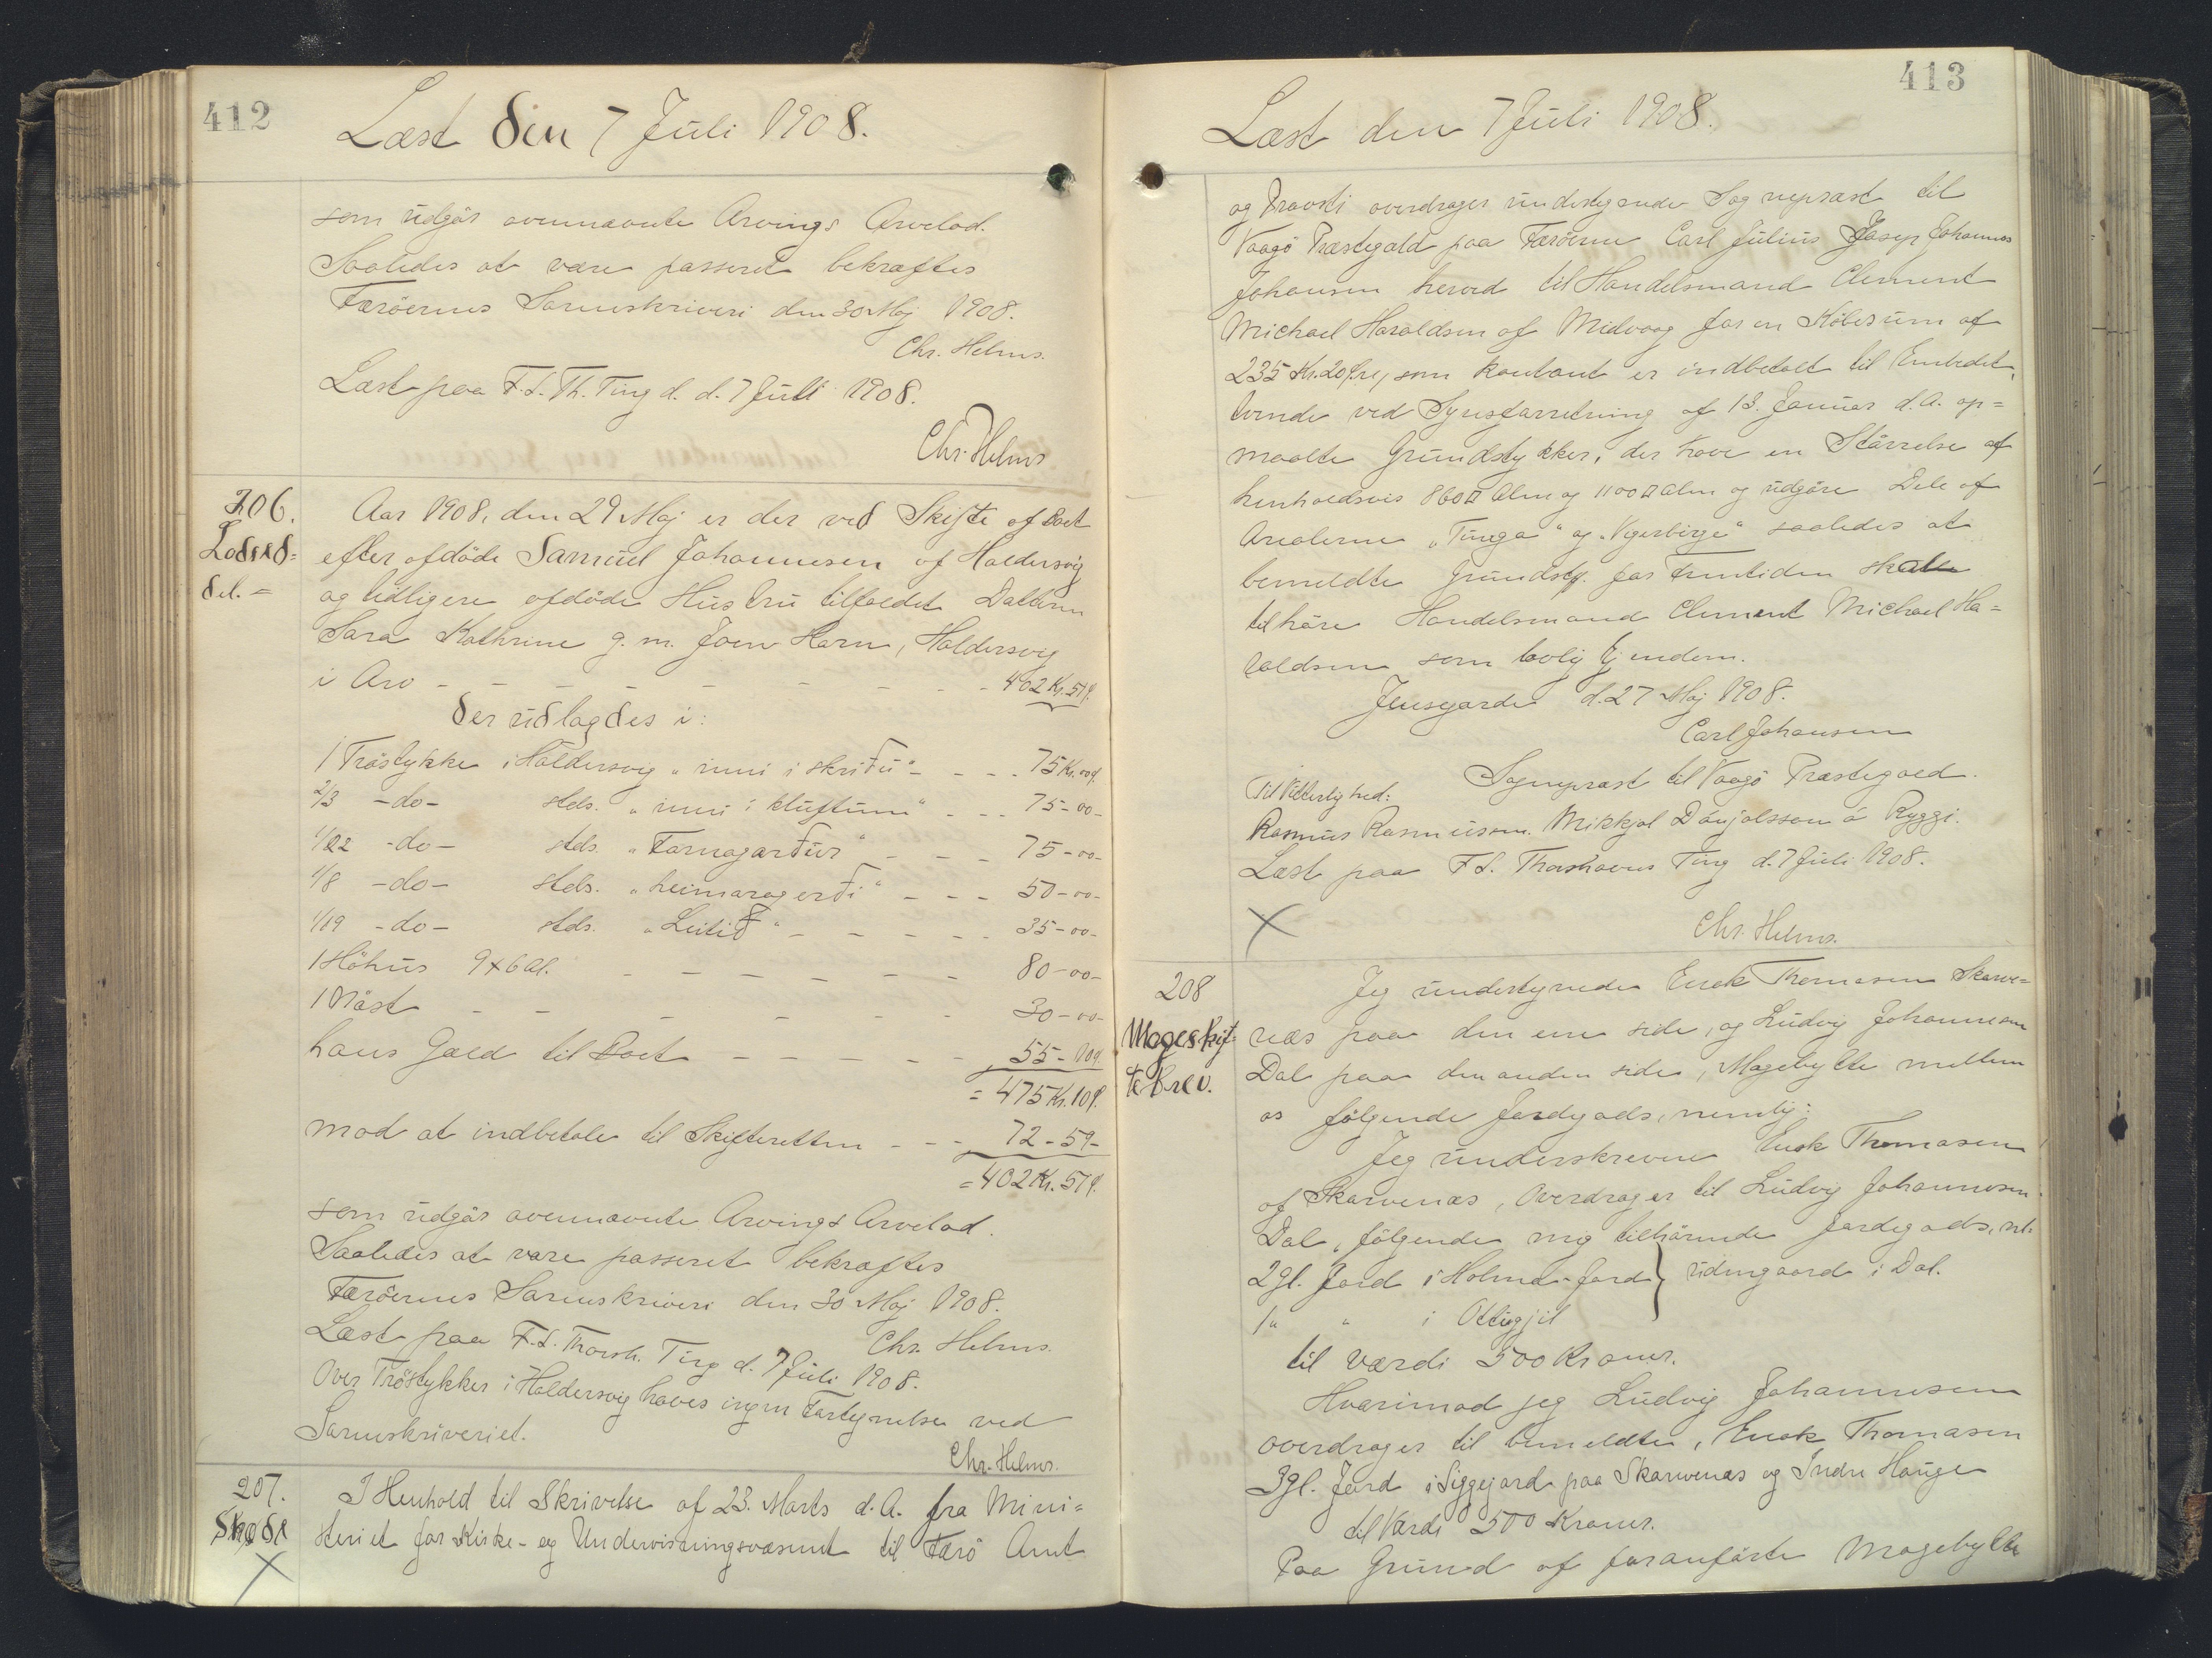 412
Læst den 7 Juli 1908.
som udgør ovennævnte Arvings Arvelod.
Saaledes at være passeret bekræftes
Færöernes Sorenskriveri den 30 Maj 1908.
Chr. Helms.
Læst paa F. S. Th. Ting d. d. 7 Juli 1908.
Chr. Helms
206.
Lodsed=
del. =
Aar 1908, den 29 Maj er der ved Skifte af Boet
efter afdöde Samuel Johannesen af Haldersvig
og tidligere afdöde Hustru tilfaldet Datteren
Sara Kathrine g. m. Joen Horn, Haldersvig
i Arv - - - - - - - 402 Kr. 51 Ø.
der udlagdes i:
1 Tröstykke i Haldersvig "inni i skriðu" - - - 75 Kr. 00 Ø.
2/3 -do- stds. "inni i kluftum" - - - 75-00-
1/22 -do- stds. "Fornagarður" - - - 75-00-
1/8 -do- stds. "heimaragerði" - - - 50-00-
1/19 -do- stds. "Leitið" - - - - - 35-00-
1 Höhus 9x6 al. - - - - - - 80-00-
1 Nöst - - - - - - 30-00-
hans Gæld til Boet - - - - - 55-10 Ø.
= 475 Kr. 10 Ø.
mod at indbetale til Skifteretten - - - 72-59-
= 402 Kr. 51 Ø.
som udgør ovennævnte Arvings Arvelod.
Saaledes at være passeret bekræftes
Færöernes Sorenskriveri den 30 Maj 1908.
Chr. Helms.
Læst paa F. S. Thorsh. Ting d. 7 Juli 1908.
Over Tröstykker i Haldersvig haves ingen Fortegnelse ved
Sorenskriveriet.
Chr. Helms.
207.
Skøde
X
I Henhold til Skrivelse af 23. Marts d. A. fra Mini=
steriet for Kirke- og Undervisningsvæsenet til Færö Amt
413
Læst den 7 Juli 1908.
og Provsti overdrager undertegnede Sognepræst til
Vaagö Præstegæld paa Færöerne Carl Julius Jasep Johannes
Johansen herved til Handelsmand Clement
Michael Haraldsen af Midvaag for en Köbesum af
235 Kr. 20 Øre, som kontant er indbetalt til Embedet,
tvende ved Synsforretning af 13. Januar d. A. op=
maalte Grundstykker, der have en Störrelse af
henholdsvis 860 □ Alen og 1100 □ Alen og udgöre Dele af
Arealerne "Tunga" og "Vgerbirge" saaledes at
bemeldte Grundstk. for Fremtiden skulle
tilhöre Handelsmand Clement Michael Ha=
raldsen som lovlig Ejendom.
Jensegarde d. 27 Maj 1908.
Carl Johansen
Sognepræst til Vaagö Præstegæld.
Til Vitterlighed:
Rasmus Rasmussen. Mikkjal Dánjalsson á Ryggi.
Læst paa F. S. Thorshavns Ting d. 7 Juli 1908.
X
Chr. Helms.
208
Mageskif-
tebrev.
Jeg undertegnede Enok Thomasen Skarve=
næs paa den ene side, og Ludvig Johannesen
Dal paa den anden side, Magebytte mellem
os følgende Jordegods, nemlig:
Jeg underskrevne Enok Thomasen
af Skarvenæs, Overdrager til Ludvig Johannesen
Dal, følgende mig tilhörende Jordegods, nl.
2 gl. Jord i Holme-Jord } udengaard i Dal.
1 " " i Ottegjil
til Værdi 500 Kroner.
Hvorimod jeg Ludvig Johannesen
overdrager til bemeldte, Enok Thomasen
3 gl. Jord i Siggejord paa Skarvenæs og Indre Hauge
til Værdi 500 Kroner.
Paa Grund af foranförte Magebytte